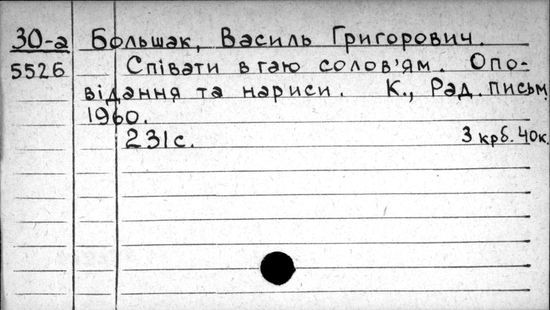 30-а Большак, Василь Григорович.
5526 Співати в гаю солов'ям. Опо-
відання та нариси. К., Рад. письм.
1960.
231с. 3 крб. 40к.